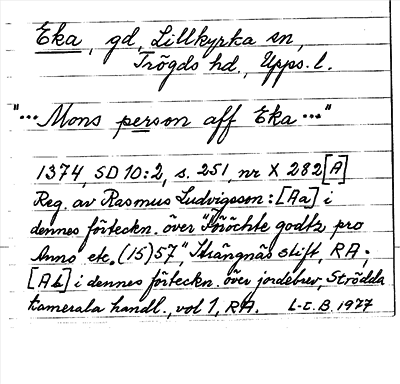 Eka, gd, Lillkyrka sn,
Trögds hd., Upps. l.
"... Mons person aff Eka ..."
1374, SD 10:2, s. 251, nr X 282 [A]
Reg. av Rasmus Ludvigsson: [Aa] i
dennes förteckn. över "Föröchte godtz pro
Anno etc. (15)57", Strängnäs stift, RA;
[Ab] i dennes förteckn. över jordebrev, Strödda
kamerala handl., vol 1, RA. L-E. B. 1977